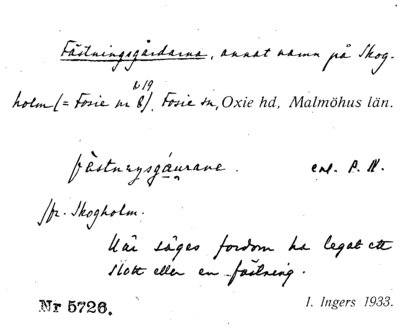 Fästningsgårdarna, annat namn på Skog-
o 19
holm (= Fosie nr 8), Fosie sn, Oxie hd, Malmöhus län.
fästnıŋsgáurana. enl. P. N.
Jfr. Skogholm.
Här säges fordom ha legat ett
slott eller en fästning.
Nr 5726. I. Ingers 1933.